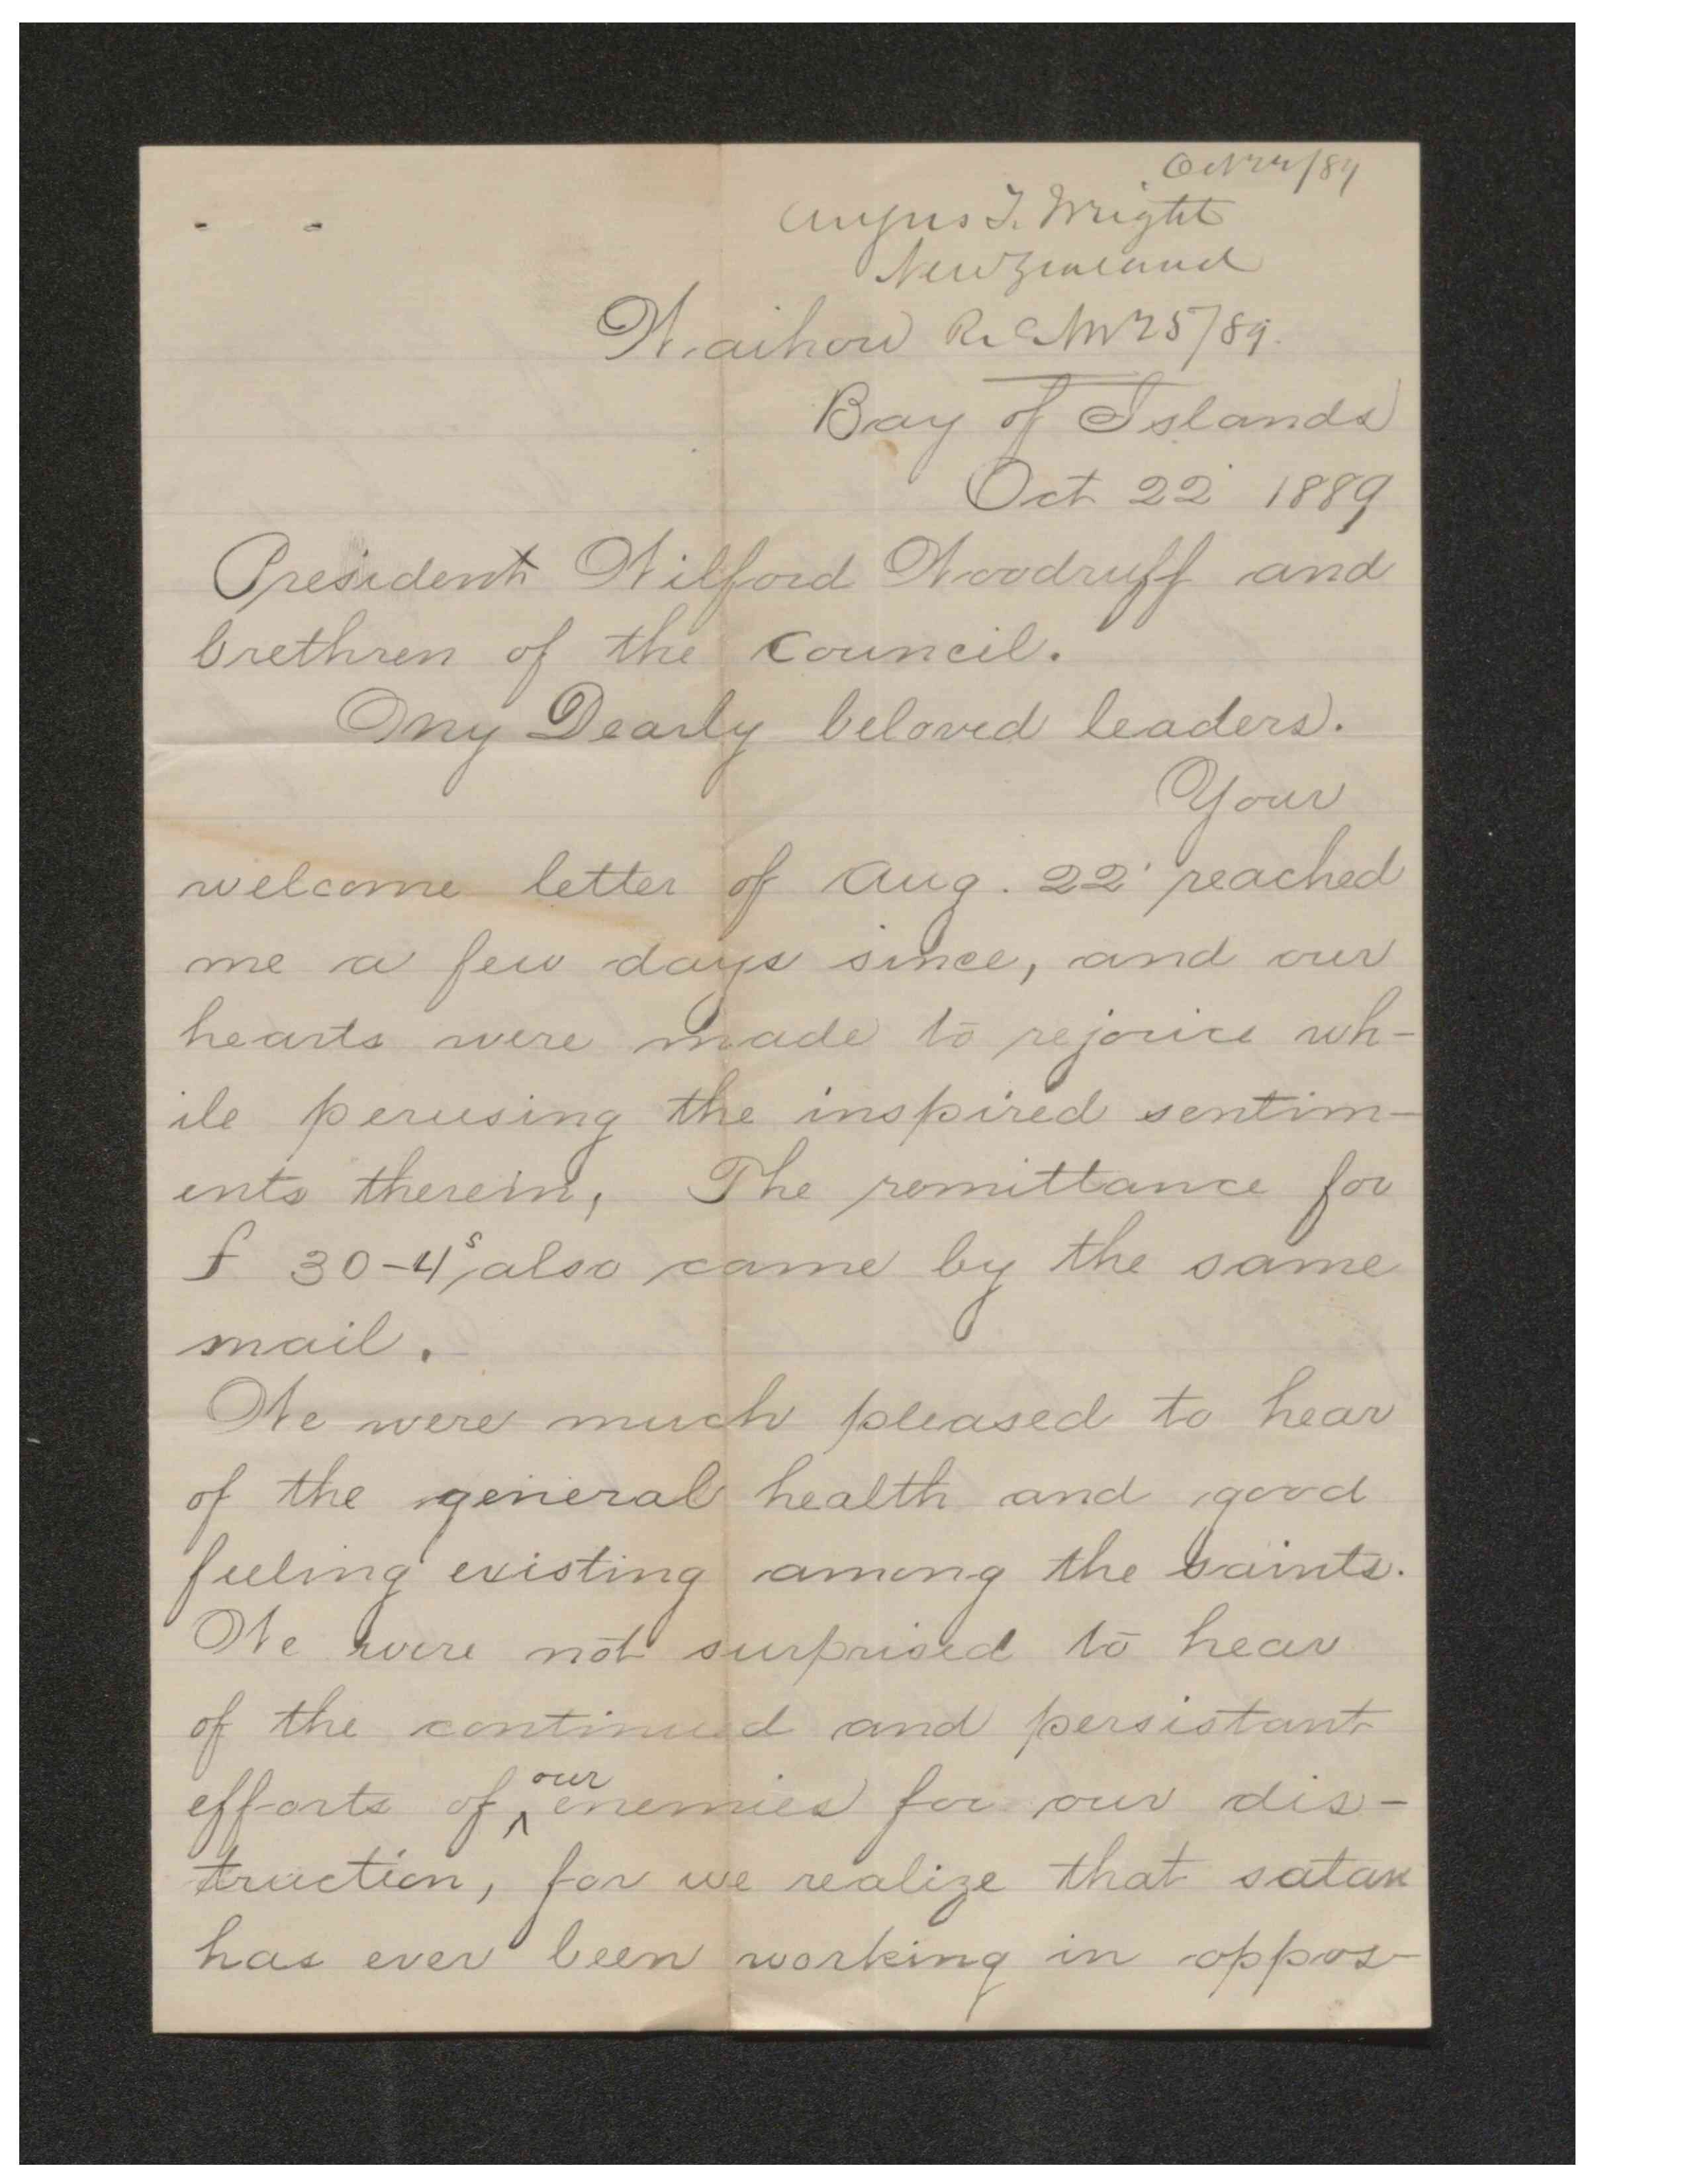 Oct 22/89
Angus T. Wright
New Zealand
Waihou Rec Nov 25/89.
Bay of Islands
Oct 22 1889
President Wilford Woodruff and
brethren of the Council.
My Dearly beloved leaders.
Your
welcome letter of Aug. 22 reached
me a few days since, and our
hearts were made to rejoice wh-
ile perusing the inspired sentim-
ents therein, The remittance for
£ 30-4s also came by the same
mail.
We were much pleased to hear
of the general health and good
feeling existing among the saints.
We were not surprised to hear
of the continued and persistant
efforts of our enemies for our dis-
truction, for we realize that satan
has ever been working in oppos-